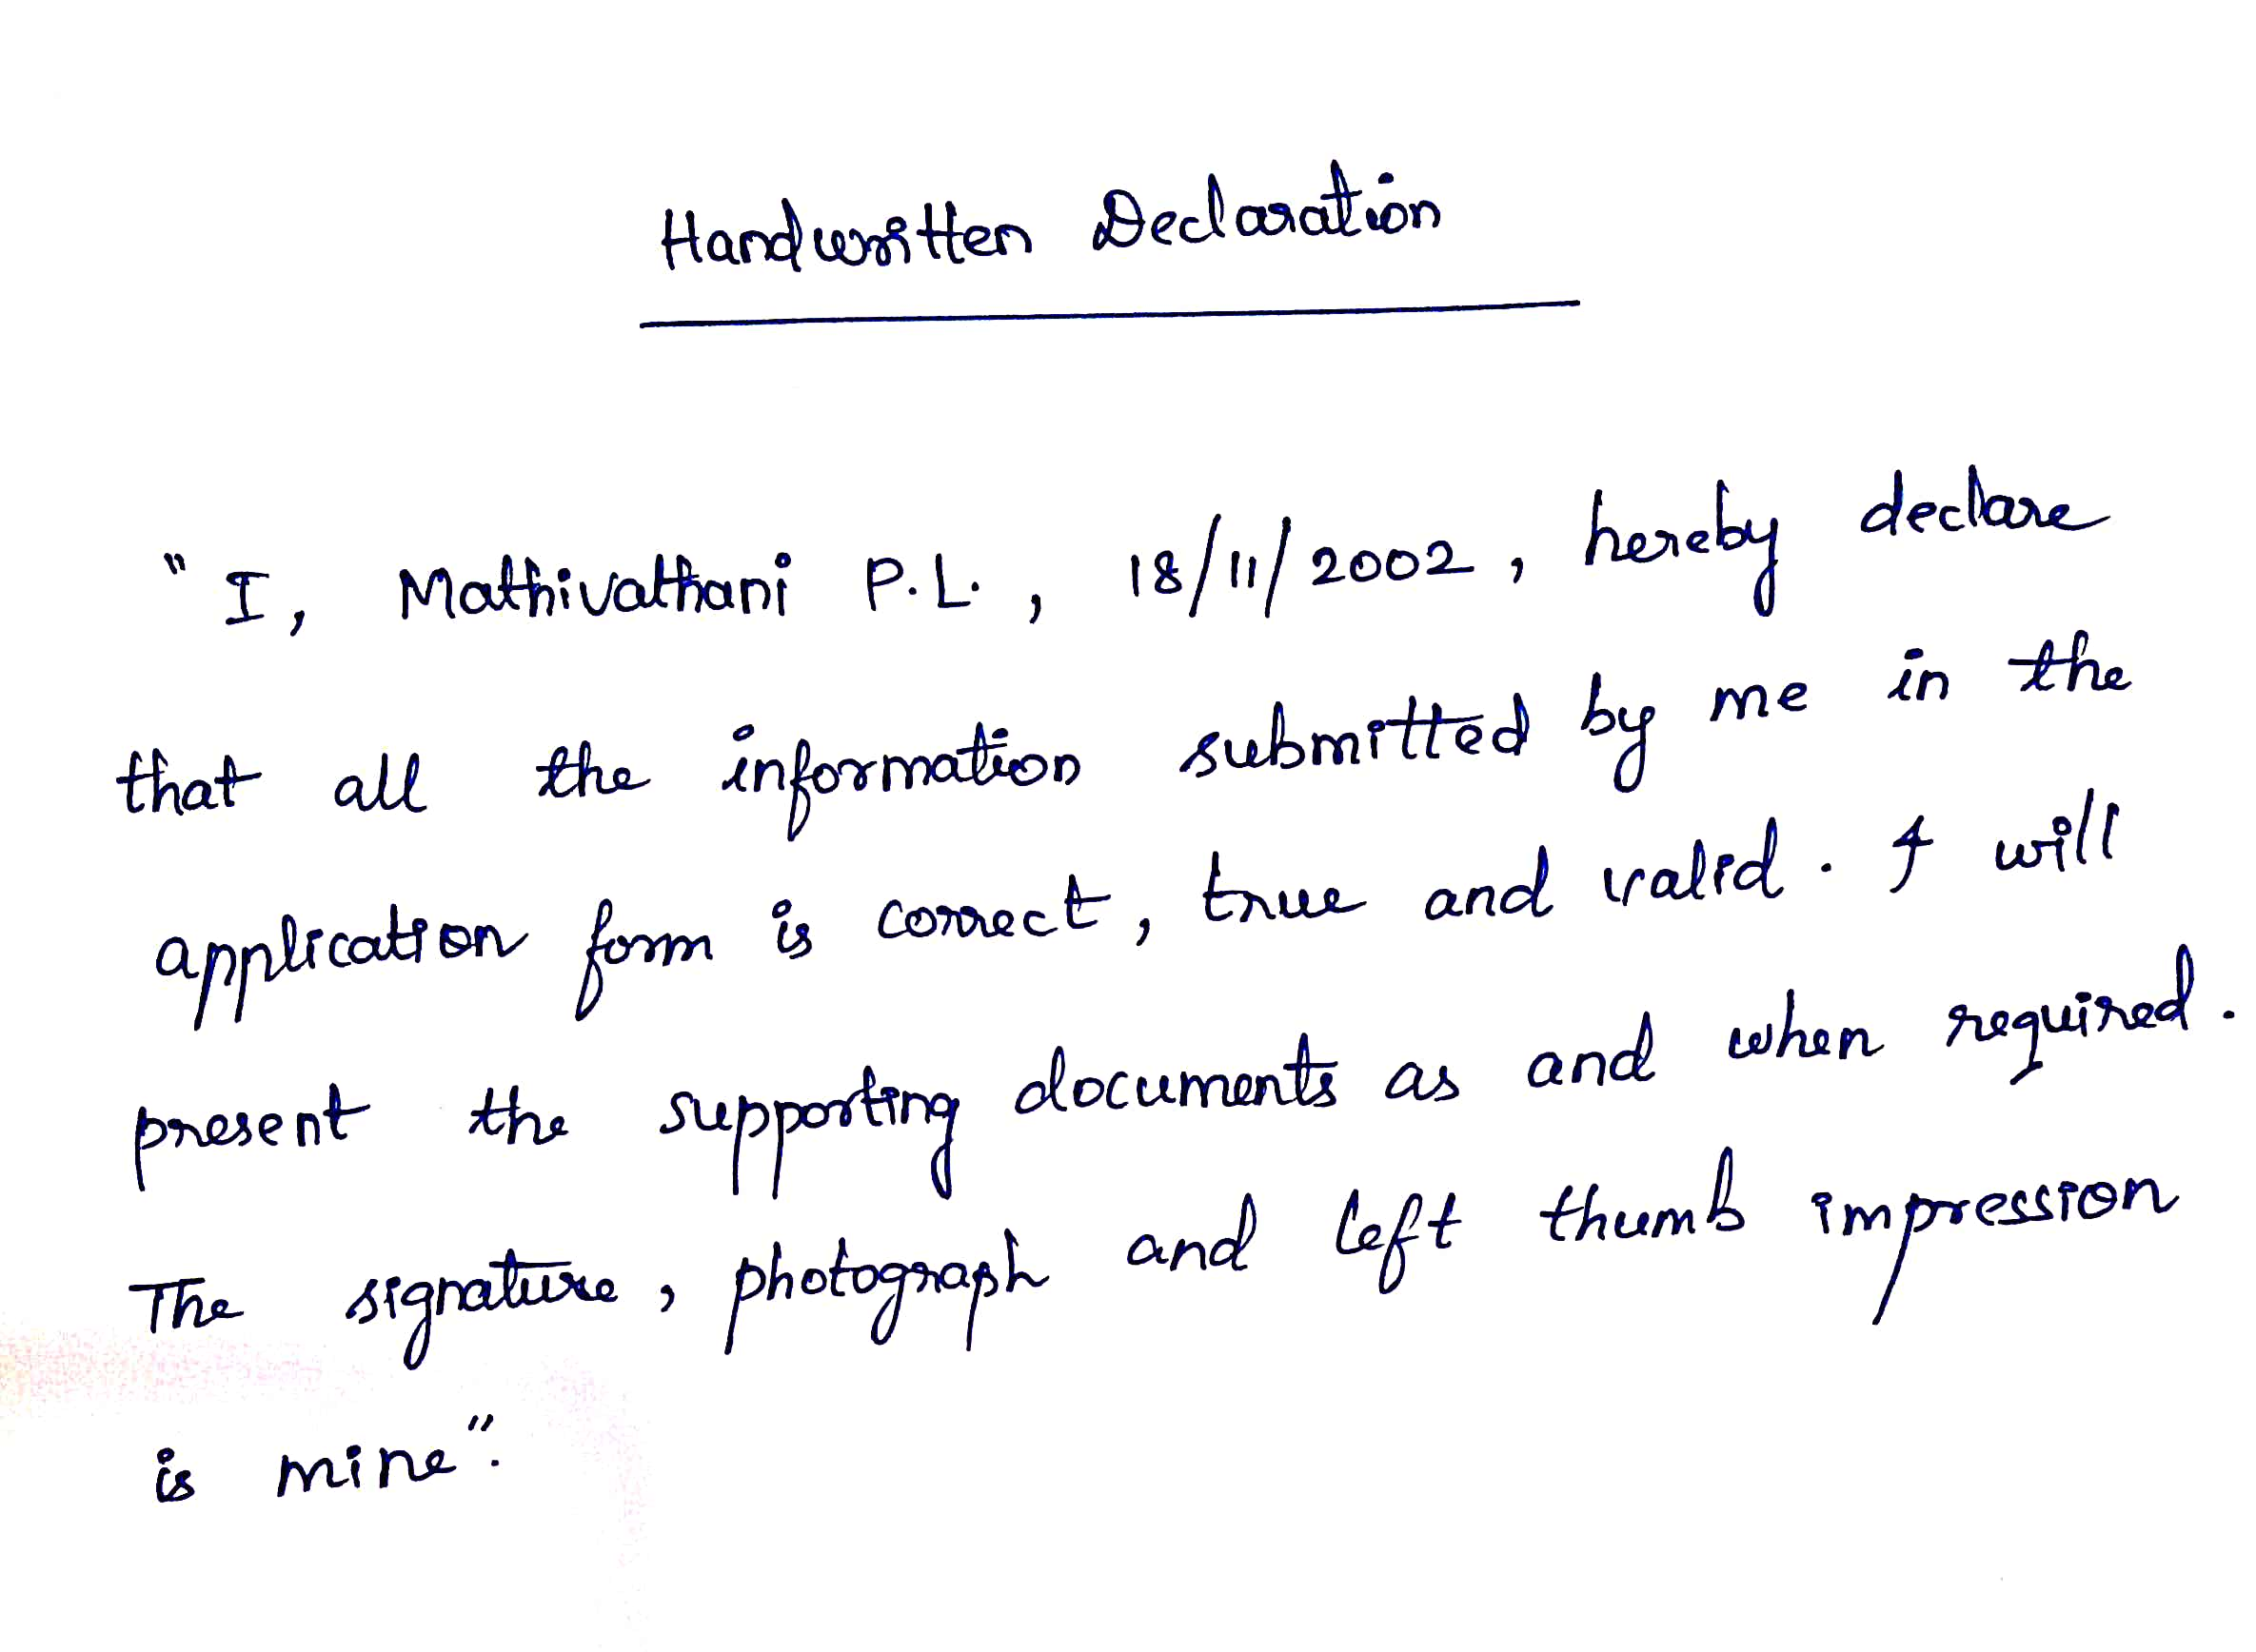 Handwritten Declaration
"I, Mathivathani P.L., 18/11/2002, hereby declare
that all the information submitted by me in the
application form is correct, true and valid. I will
present the supporting documents as and when required.
The signature, photograph and left thumb impression
is mine".